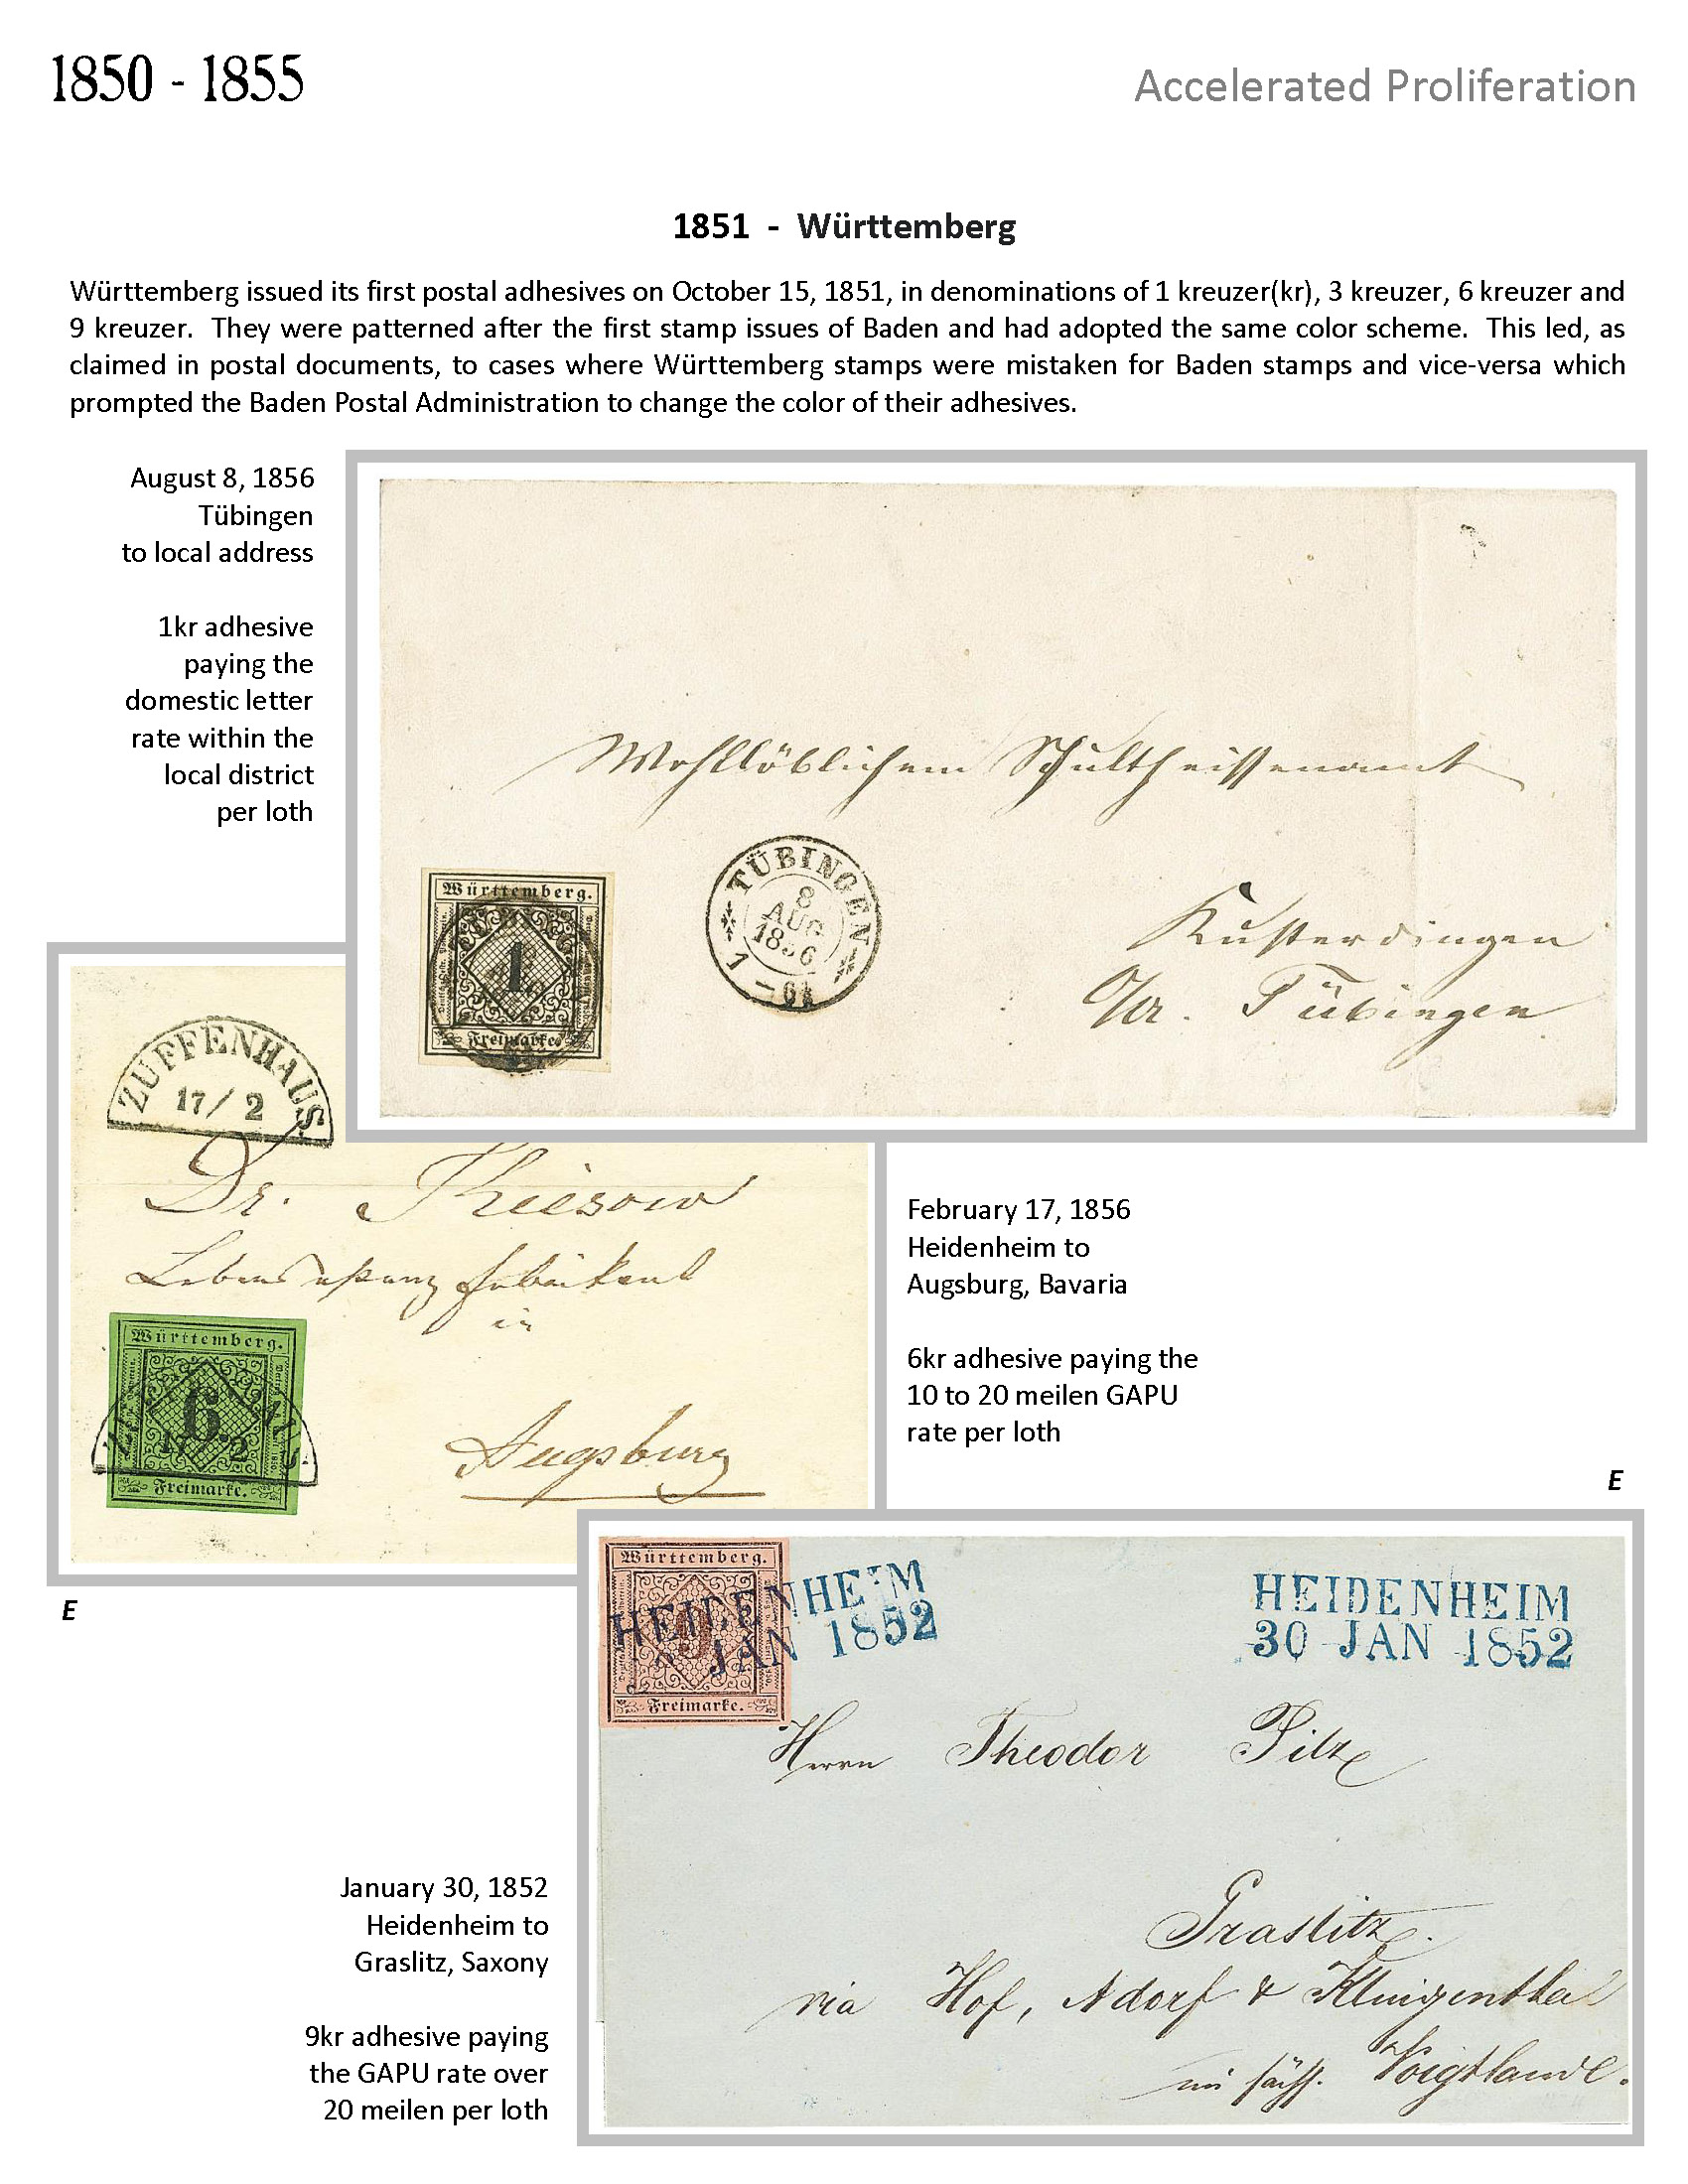 1850 - 1855
Accelerated Proliferation
1851 - Württemberg
Württemberg issued its first postal adhesives on October 15, 1851, in denominations of 1 kreuzer(kr), 3 kreuzer, 6 kreuzer and
9 kreuzer. They were patterned after the first stamp issues of Baden and had adopted the same color scheme. This led, as
claimed in postal documents, to cases where Württemberg stamps were mistaken for Baden stamps and vice-versa which
prompted the Baden Postal Administration to change the color of their adhesives.
August 8, 1856
Tübingen
to local address
1kr adhesive
paying the
domestic letter
rate within the
local district
per loth
Wohllöblichem Schultheissenamt
TÜBINGEN
8
AUG
1856
Kusterdingen
O/A. Tübingen
Württemberg.
1
Freimarke.
ZUFFENHAUS.
17/2
Dr. Thiesow
in
Augsburg
Württemberg.
6.
17/2
Freimarke.
February 17, 1856
Heidenheim to
Augsburg, Bavaria
6kr adhesive paying the
10 to 20 meilen GAPU
rate per loth
E
E
Württemberg.
9
Freimarke.
HEIDENHEIM
JAN 1852
HEIDENHEIM
30 JAN 1852
Herrn Theodor Pilz
Graslitz.
via Hof, Adorf & Klingenthal
im sächs. Voigtlande.
January 30, 1852
Heidenheim to
Graslitz, Saxony
9kr adhesive paying
the GAPU rate over
20 meilen per loth